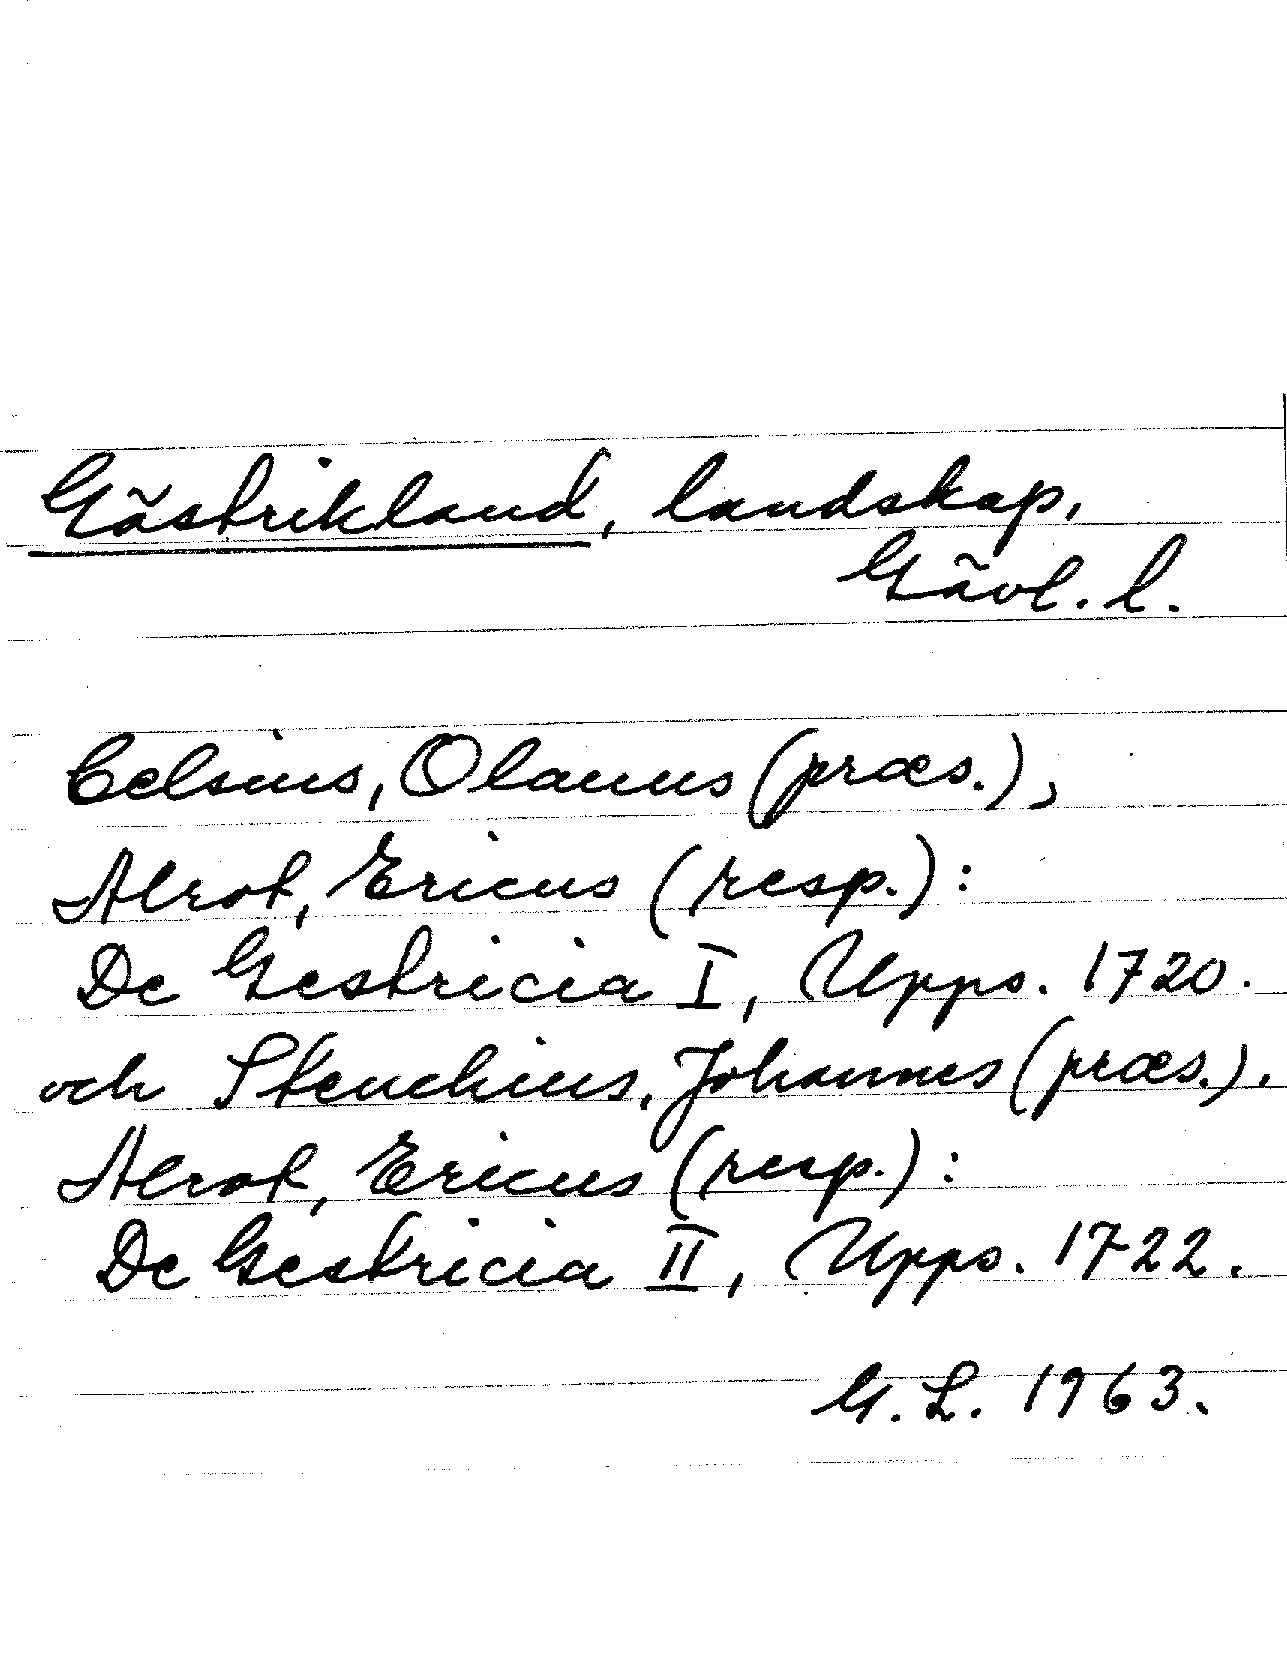 Gästrikland, landskap,
Gävl. l.
Celsius, Olauus (præs.),
Alrot, Ericus (resp.):
De Gestricia I, Upps. 1720.
och Steuchius, Johannes (præs.),
Alrot, Ericus (resp.):
De Gestricia II, Upps. 1722.
G. L. 1963.